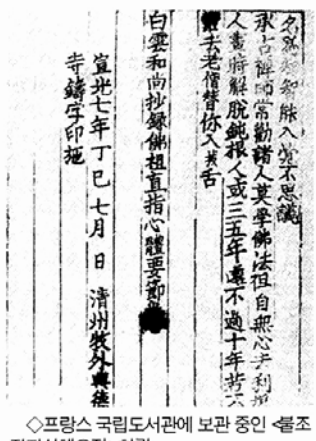 名 知 能入 不思議
承古禪師常勸諸人莫學佛法但自無心去利根
人畫時解脫鈍根人或三五年遠不過十年若不
去老僧替你入拔舌
白雲和尚抄錄佛祖直指心體要節
宣光七年丁巳七月 日 清州牧外興德
寺鑄字印施
◇프랑스 국립도서관에 보관 중인 <불조